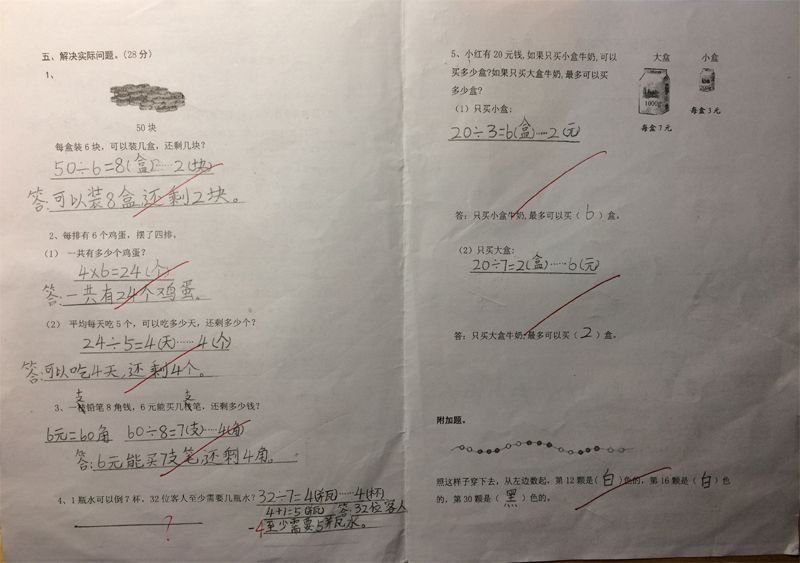 五、解决实际问题。(28分)
1、
50块
每盒装6块，可以装几盒，还剩几块？
50÷6=8(盒)……2(块)
答:可以装8盒,还剩2块。
2、每排有6个鸡蛋，摆了四排。
(1) 一共有多少个鸡蛋?
4×6=24(个)
答:一共有24个鸡蛋。
(2) 平均每天吃5个，可以吃多少天，还剩多少个?
24÷5=4(天)……4(个)
答:可以吃4天,还剩4个。
3、一支铅笔8角钱，6元能买几支笔，还剩多少钱?
6元=60角 60÷8=7(支)……4(角)
答:6元能买7支笔,还剩4角。
4、1瓶水可以倒7杯，32位客人至少需要几瓶水?
32÷7=4(瓶)……4(杯)
4+1=5(瓶) 答:32位客人
至少需要5瓶水。
?
-4
5、小红有20元钱,如果只买小盒牛奶,可以
买多少盒?如果只买大盒牛奶,最多可以买
多少盒?
大盒 小盒
1000g
每盒7元 每盒3元
(1) 只买小盒:
20÷3=6(盒)……2(元)
答：只买小盒牛奶,最多可以买（ 6 ）盒。
(2) 只买大盒:
20÷7=2(盒)……6(元)
答：只买大盒牛奶,最多可以买（ 2 ）盒。
附加题。
照这样子穿下去，从左边数起，第12颗是( 白 )色的，第16颗是( 白 )色
的，第30颗是( 黑 )色的。